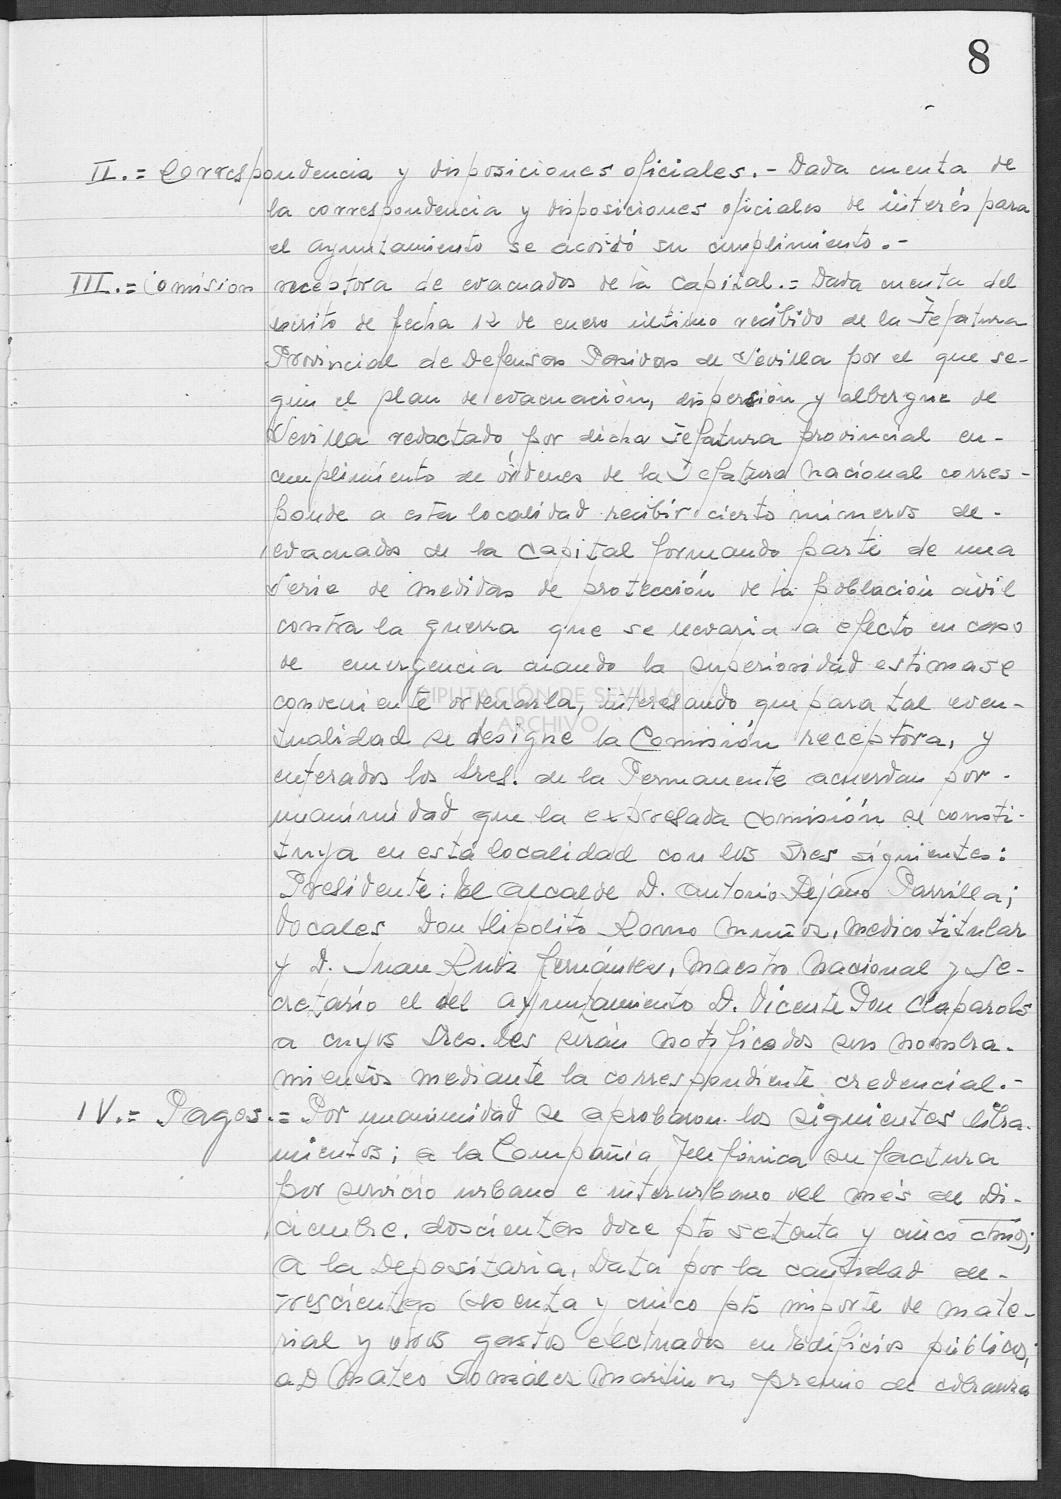 8
II.= Correspondencia y disposiciones oficiales.- Dada cuenta de
la correspondencia y disposiciones oficiales de interés para
el Ayuntamiento se acordó su cumplimiento.-
III.= Comision receptora de evacuados de la Capital.= Dada cuenta del
escrito de fecha 12 de enero último recibido de la Jefatura
Provincial de Defensa Pasiva de Sevilla por el que se-
gún el plan de evacuación, dispersión y albergue de
Sevilla redactado por dicha Jefatura provincial en-
cumplimiento de órdenes de la Jefatura Nacional corres-
ponde a esta localidad recibir cierto números de-
evacuados de la Capital formando parte de una
serie de medidas de protección de la población civil
contra la guerra que se llevaria a efecto en caso
de emergencia cuando la superioridad estimase
conveniente ordenarla, interesando que para tal even-
tualidad se designe la Comisión receptora, y
enterados los Sres. de la Permanente acuerdan por-
unanimidad que la expresada Comisión se consti-
tuya en esta localidad con los Sres siguientes:
Presidente: El alcalde D. Antonio Pejano Parrilla;
Vocales Don Hipolito Romo Muñoz, Medico titular
y D. Juan Ruiz Fernández, Maestro Nacional y Se-
cretario el del Ayuntamiento D. Vicente Don Claparols
a cuyos Sres. les serán notificados sus nombra-
mientos mediante la correspondiente credencial.-
IV.= Pagos.= Por unanimidad se aprobaron los siguientes libra-
mientos; a la Compañia Telefónica su factura
por servicio urbano e interurbano del mes de Di-
ciembre, doscientas doce pts setenta y cinco ctmos;
A la Depositaria, Data por la cantidad de-
trescientas y cinco pts importe de mate-
rial y otros gastos efectuados en Edificios públicos;
a D Mateo González Martin premio de cobranza
DIPUTACIÓN DE SEVILLA
ARCHIVO